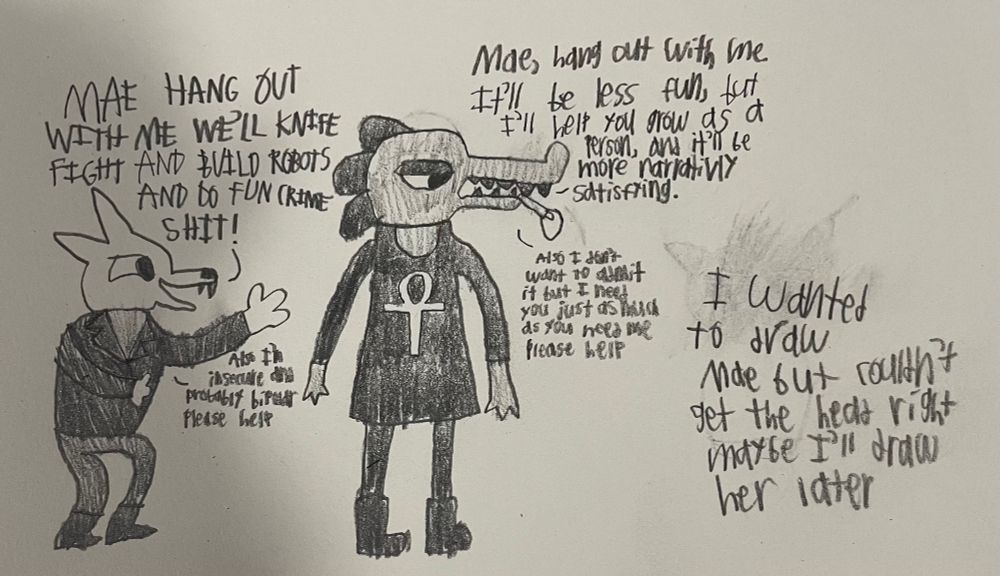 MAE HANG OUT
WITH ME WE'LL KNIFE
FIGHT AND BUILD ROBOTS
AND DO FUN CRIME
SHIT!
Also I'm
insecure and
probably bipolar
Please help
Mae, hang out with me
It'll be less fun, but
I'll help you grow as a
person, and it'll be
more narrativly
satisfying.
Also I don't
want to admit
it but I need
you just as much
as you need me
Please help
I wanted
to draw
Mae but couldn't
get the head right
maybe I'll draw
her later